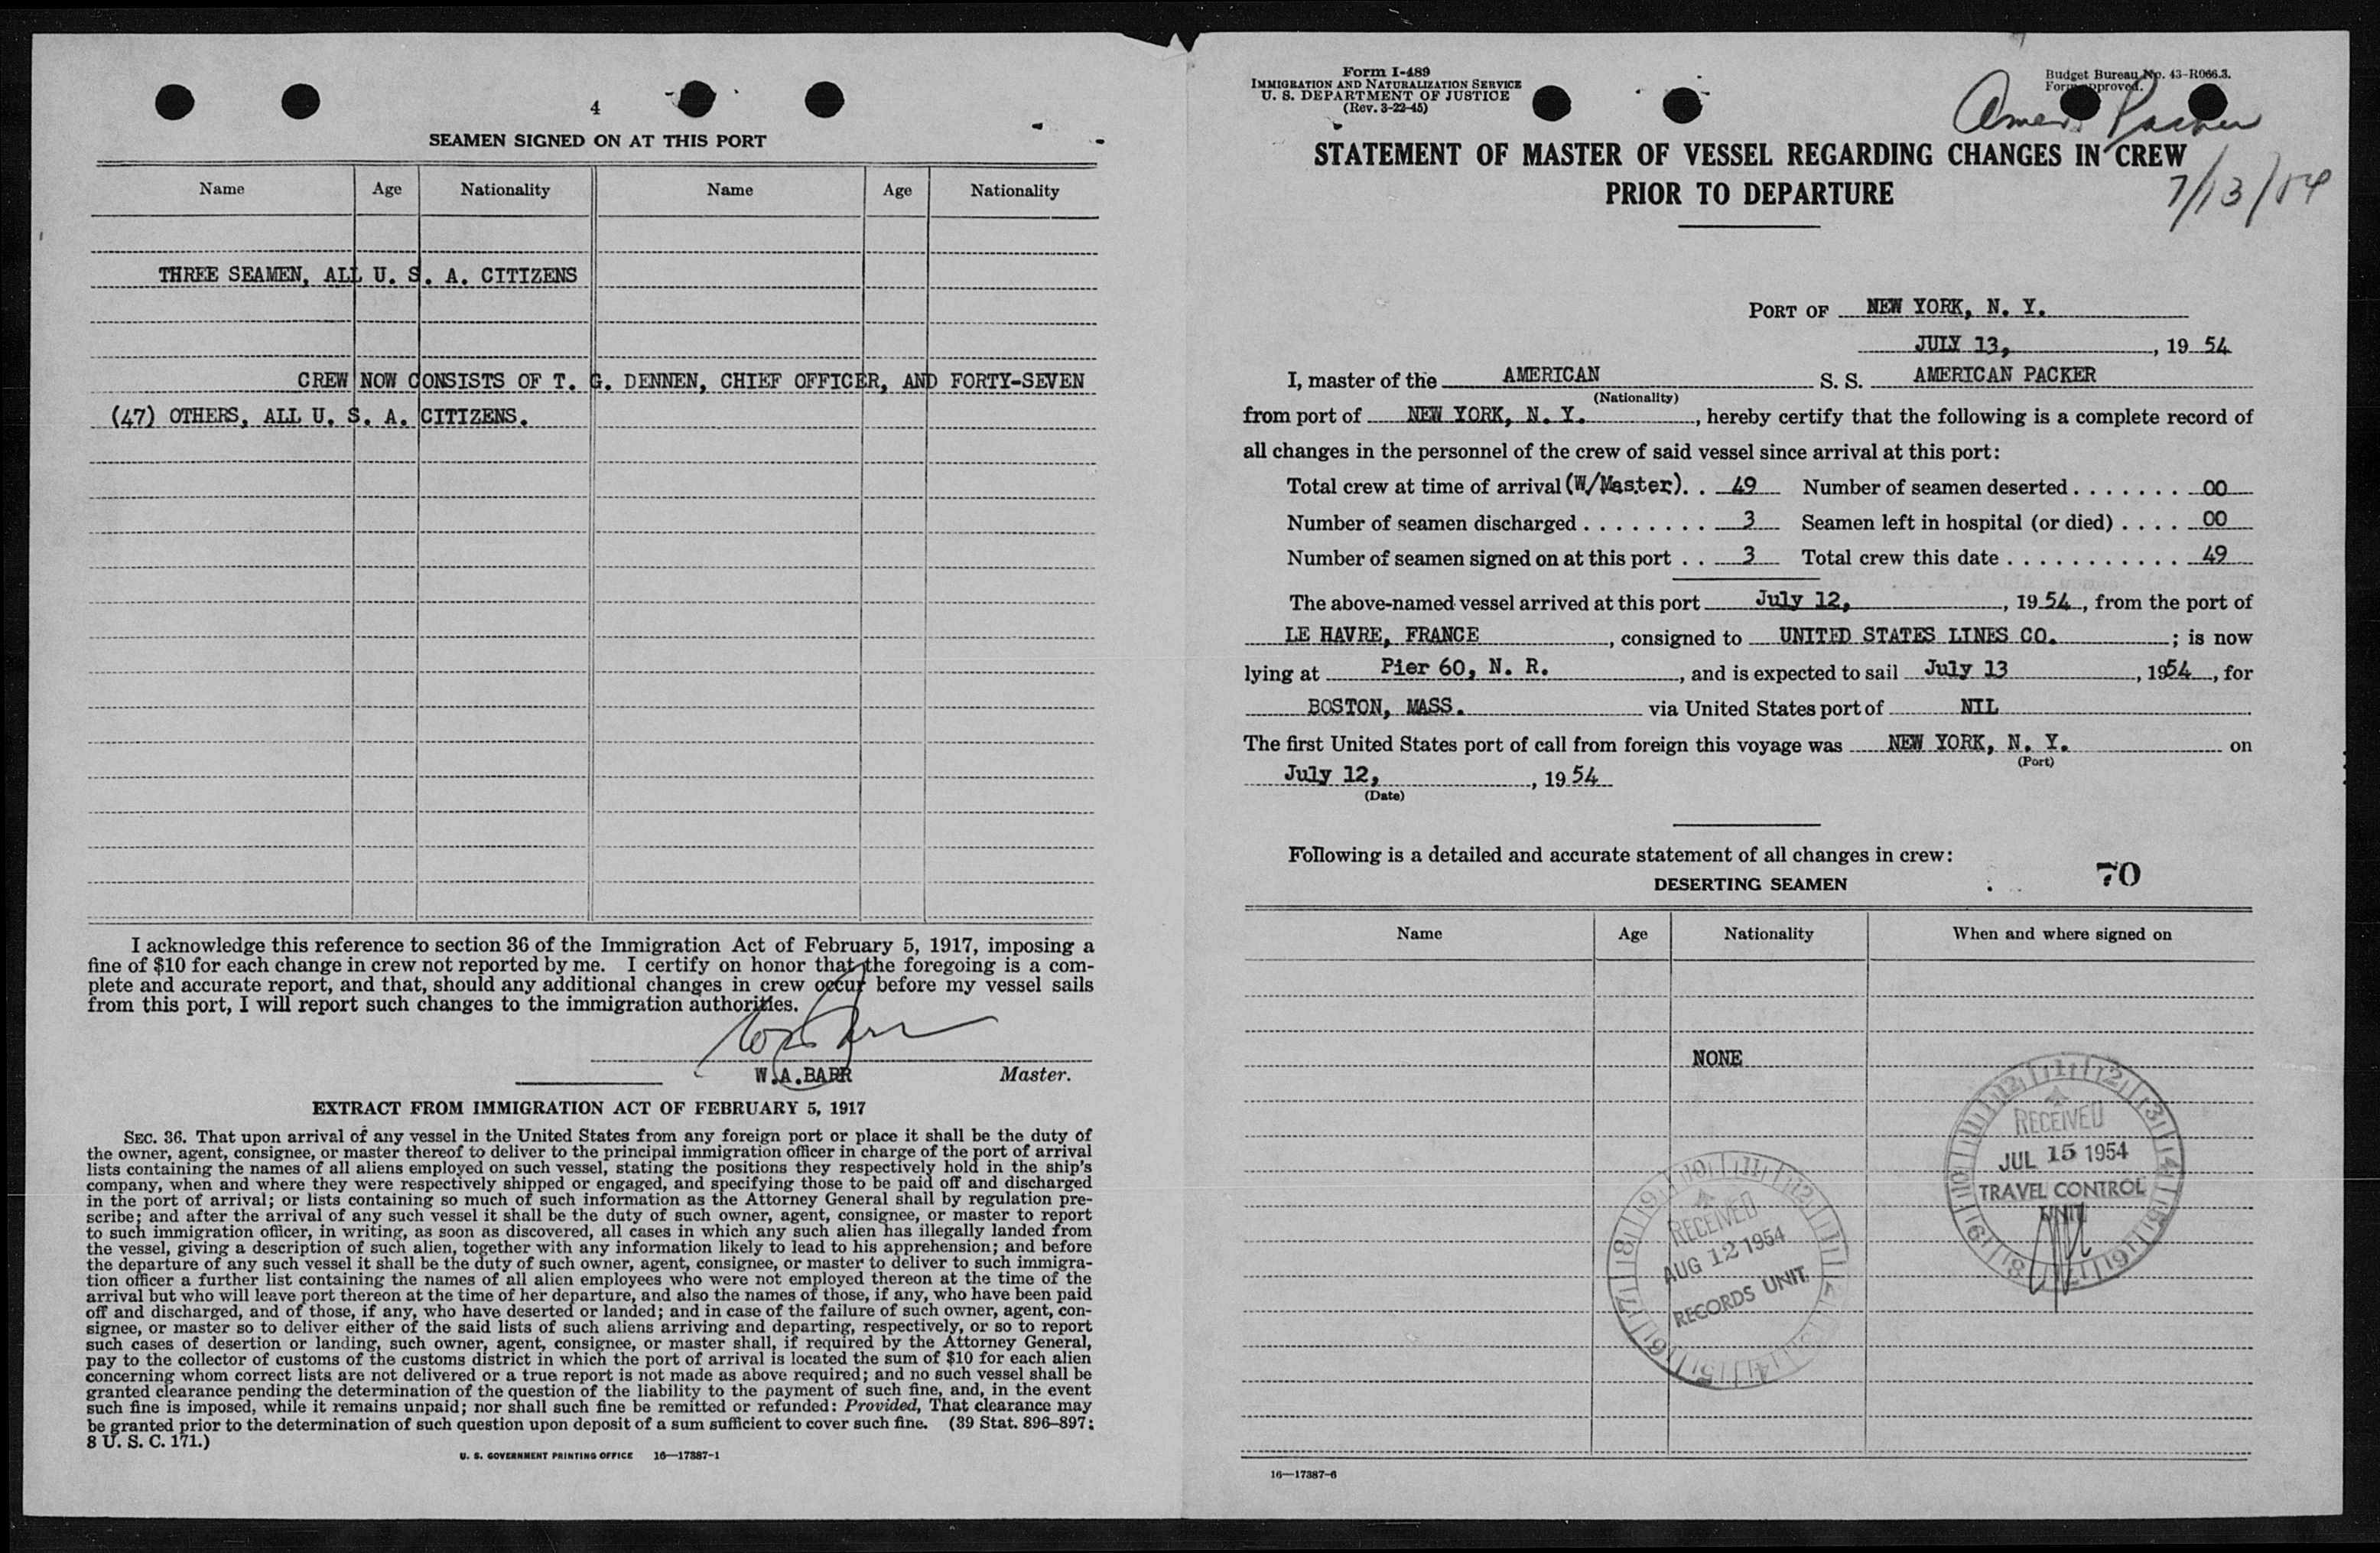 4
SEAMEN SIGNED ON AT THIS PORT
Name Age Nationality Name Age Nationality
THREE SEAMEN, ALL U. S. A. CITIZENS
CREW NOW CONSISTS OF T. G. DENNEN, CHIEF OFFICER, AND FORTY-SEVEN
(47) OTHERS, ALL U. S. A. CITIZENS.
I acknowledge this reference to section 36 of the Immigration Act of February 5, 1917, imposing a
fine of $10 for each change in crew not reported by me. I certify on honor that the foregoing is a com-
plete and accurate report, and that, should any additional changes in crew occur before my vessel sails
from this port, I will report such changes to the immigration authorities.
W.A.BARR Master.
EXTRACT FROM IMMIGRATION ACT OF FEBRUARY 5, 1917
SEC. 36. That upon arrival of any vessel in the United States from any foreign port or place it shall be the duty of
the owner, agent, consignee, or master thereof to deliver to the principal immigration officer in charge of the port of arrival
lists containing the names of all aliens employed on such vessel, stating the positions they respectively hold in the ship's
company, when and where they were respectively shipped or engaged, and specifying those to be paid off and discharged
in the port of arrival; or lists containing so much of such information as the Attorney General shall by regulation pre-
scribe; and after the arrival of any such vessel it shall be the duty of such owner, agent, consignee, or master to report
to such immigration officer, in writing, as soon as discovered, all cases in which any such alien has illegally landed from
the vessel, giving a description of such alien, together with any information likely to lead to his apprehension; and before
the departure of any such vessel it shall be the duty of such owner, agent, consignee, or master to deliver to such immigra-
tion officer a further list containing the names of all alien employees who were not employed thereon at the time of the
arrival but who will leave port thereon at the time of her departure, and also the names of those, if any, who have been paid
off and discharged, and of those, if any, who have deserted or landed; and in case of the failure of such owner, agent, con-
signee, or master so to deliver either of the said lists of such aliens arriving and departing, respectively, or so to report
such cases of desertion or landing, such owner, agent, consignee, or master shall, if required by the Attorney General,
pay to the collector of customs of the customs district in which the port of arrival is located the sum of $10 for each alien
concerning whom correct lists are not delivered or a true report is not made as above required; and no such vessel shall be
granted clearance pending the determination of the question of the liability to the payment of such fine, and, in the event
such fine is imposed, while it remains unpaid; nor shall such fine be remitted or refunded: Provided, That clearance may
be granted prior to the determination of such question upon deposit of a sum sufficient to cover such fine. (39 Stat. 896–897;
8 U. S. C. 171.)
U. S. GOVERNMENT PRINTING OFFICE 16—17387-1
Form I-489
IMMIGRATION AND NATURALIZATION SERVICE
U. S. DEPARTMENT OF JUSTICE
(Rev. 3-22-45)
Budget Bureau No. 43-R066.3.
Form approved.
Amer. Packer
7/13/54
STATEMENT OF MASTER OF VESSEL REGARDING CHANGES IN CREW
PRIOR TO DEPARTURE
PORT OF NEW YORK, N. Y.
JULY 13, , 19 54
I, master of the AMERICAN S. S. AMERICAN PACKER
(Nationality)
from port of NEW YORK, N. Y. , hereby certify that the following is a complete record of
all changes in the personnel of the crew of said vessel since arrival at this port:
Total crew at time of arrival (W/Master). . 49 Number of seamen deserted . . . . . . . 00
Number of seamen discharged . . . . . . . . 3 Seamen left in hospital (or died) . . . . 00
Number of seamen signed on at this port . . 3 Total crew this date . . . . . . . . . . . 49
The above-named vessel arrived at this port July 12, , 19 54 , from the port of
LE HAVRE, FRANCE , consigned to UNITED STATES LINES CO. ; is now
lying at Pier 60, N. R. , and is expected to sail July 13 , 1954 , for
BOSTON, MASS. via United States port of NIL
The first United States port of call from foreign this voyage was NEW YORK, N. Y. on
(Port)
July 12, , 19 54
(Date)
Following is a detailed and accurate statement of all changes in crew:
70
DESERTING SEAMEN
Name Age Nationality When and where signed on
NONE
RECEIVED
JUL 15 1954
TRAVEL CONTROL
UNIT
RECEIVED
AUG 12 1954
RECORDS UNIT
16—17387-6